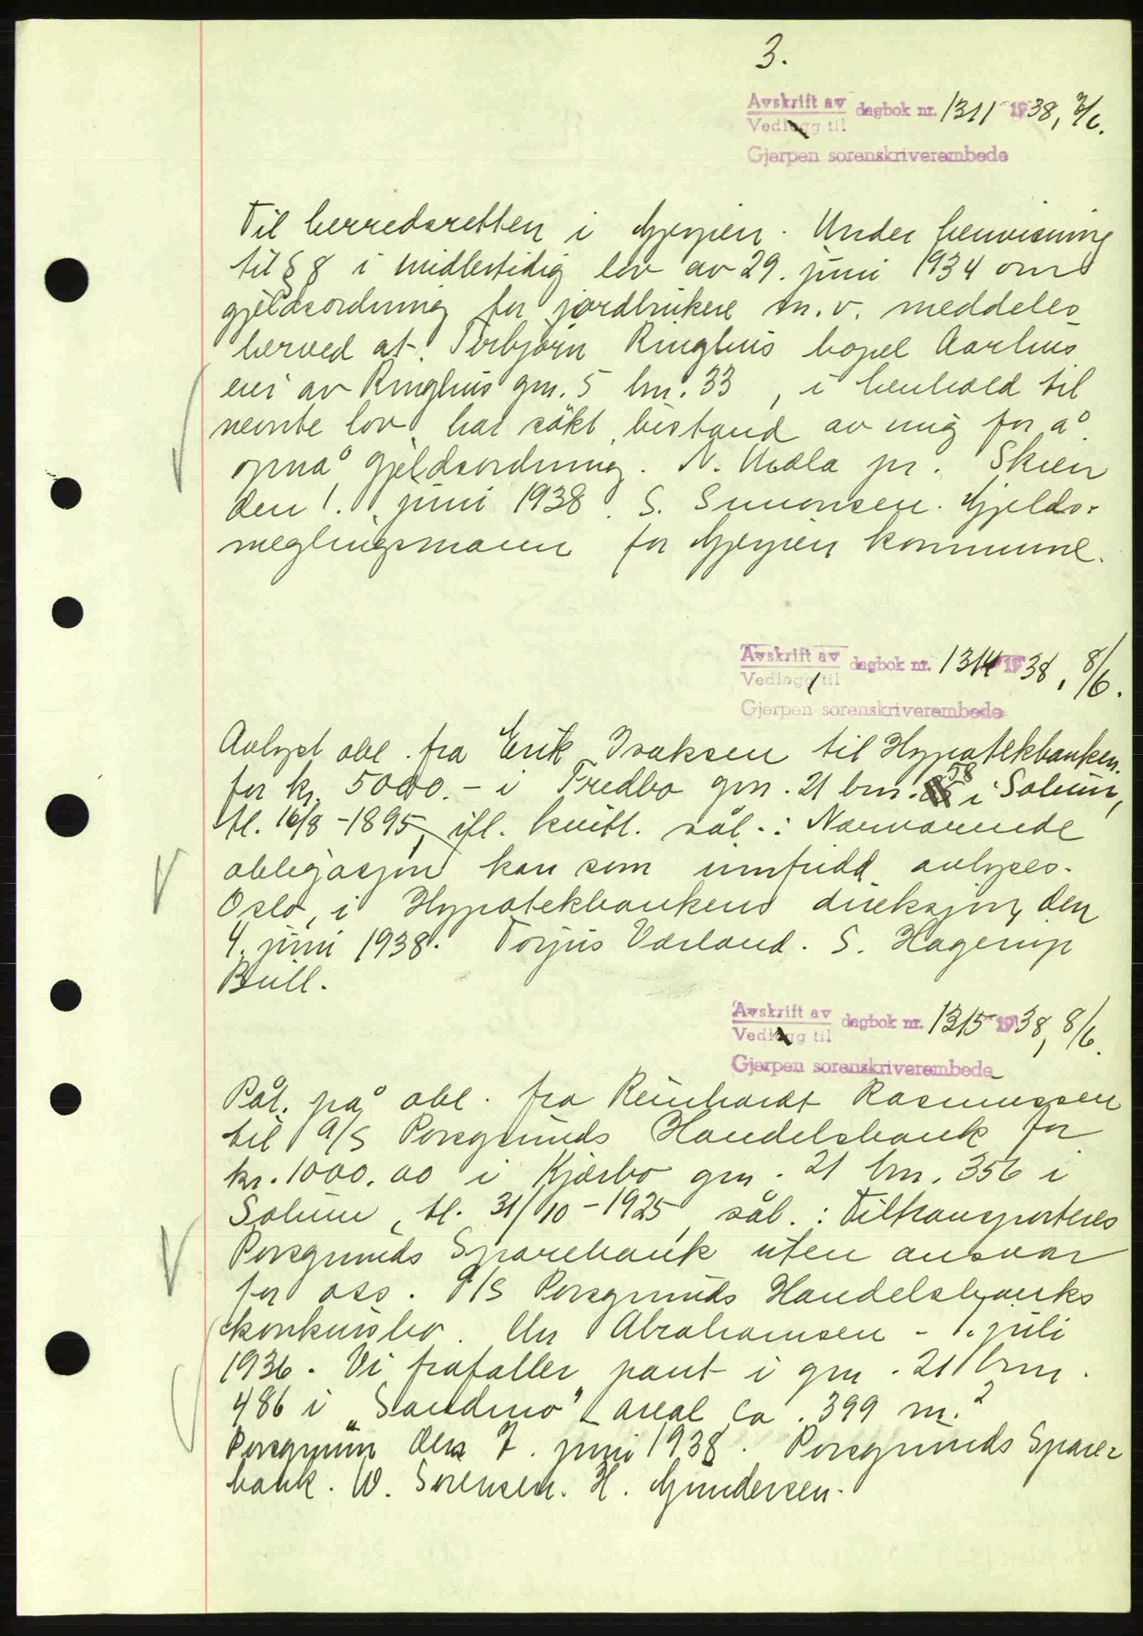 3.
Avskrift av dagbok nr. 1311 1938, 7/6.
Vedlegg til
Gjerpen sorenskriverembede
Til herredsretten i Gjerpen. Under henvisning
til § 8 i midlertidig lov av 29. juni 1934 om
gjeldsordning for jordbrukere m.v. meddeles
herved at Torbjørn Ringhus bopel Aarhus
eier av Ringhus gnr. 5 bnr. 33, i henhold til
nevnte lov har søkt bistand av mig for å
opnå gjeldsordning. N. Mæla pr. Skien
den 1. juni 1938. S. Simonsen. Gjelds-
meglingsmann for Gjerpen kommune.
Avskrift av dagbok nr. 1314 1938, 8/6.
Vedlegg til
Gjerpen sorenskriverembede
Avlyst obl. fra Erik Isaksen til Hypotekbanken
for kr. 5000.- i Fredbo gnr. 21 bnr. 58 i Solum,
tl. 16/8-1895, ifl. kvitt. sål.: Nærværende
obligasjon kan som innfridd avlyses.
Oslo, i Hypotekbankens direksjon, den
4. juni 1938. Torjus Værland. S. Hagerup
Bull.
Avskrift av dagbok nr. 1315 1938, 8/6.
Vedlegg til
Gjerpen sorenskriverembede
Påt. på obl. fra Reinhardt Rasmussen
til A/S Porsgrunds Handelsbank for
kr. 1000.00 i Kjærbo gnr. 21 bnr. 356 i
Solum, tl. 31/10-1925, sål.: Tiltransporteres
Porsgrunds Sparebank uten ansvar
for oss. A/S Porsgrunds Handelsbanks
konkursbo. Chr Abrahamsen - 1. juli
1936. Vi frafaller pant i gnr. 21 bnr.
486 i "Sandmo" areal ca. 399 m.²
Porsgrunn den 7. juni 1938. Porsgrunds Spare-
bank. W. Sørensen. H. Gundersen.